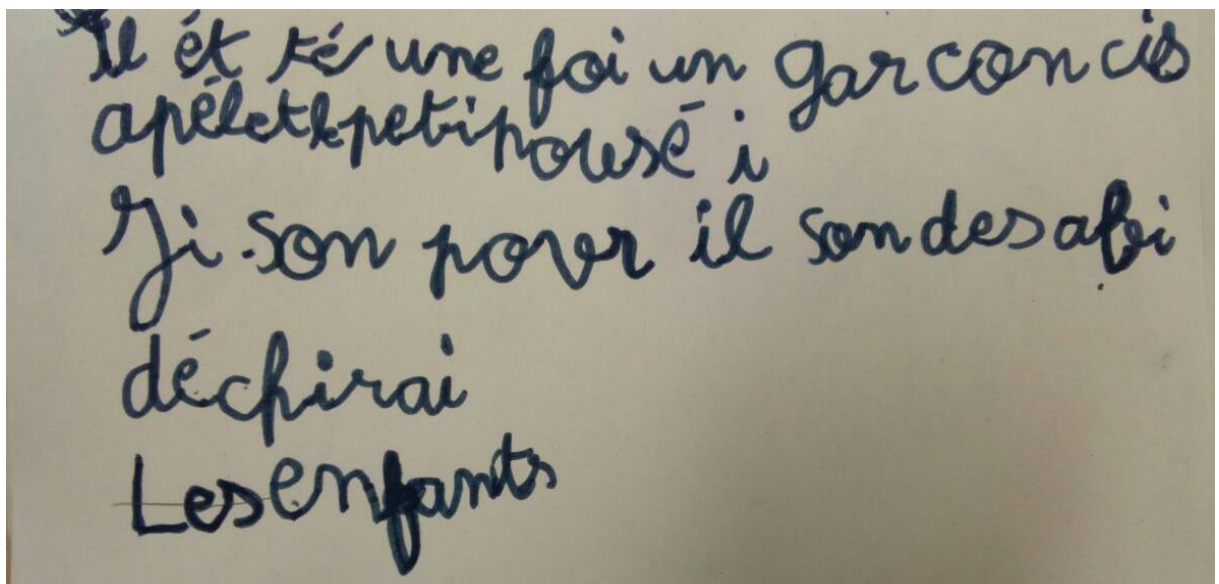 il ét té une foi un garcon cis
apélet le petipousé i
Ji. son povr il son des abi
déchirai
Les enfants